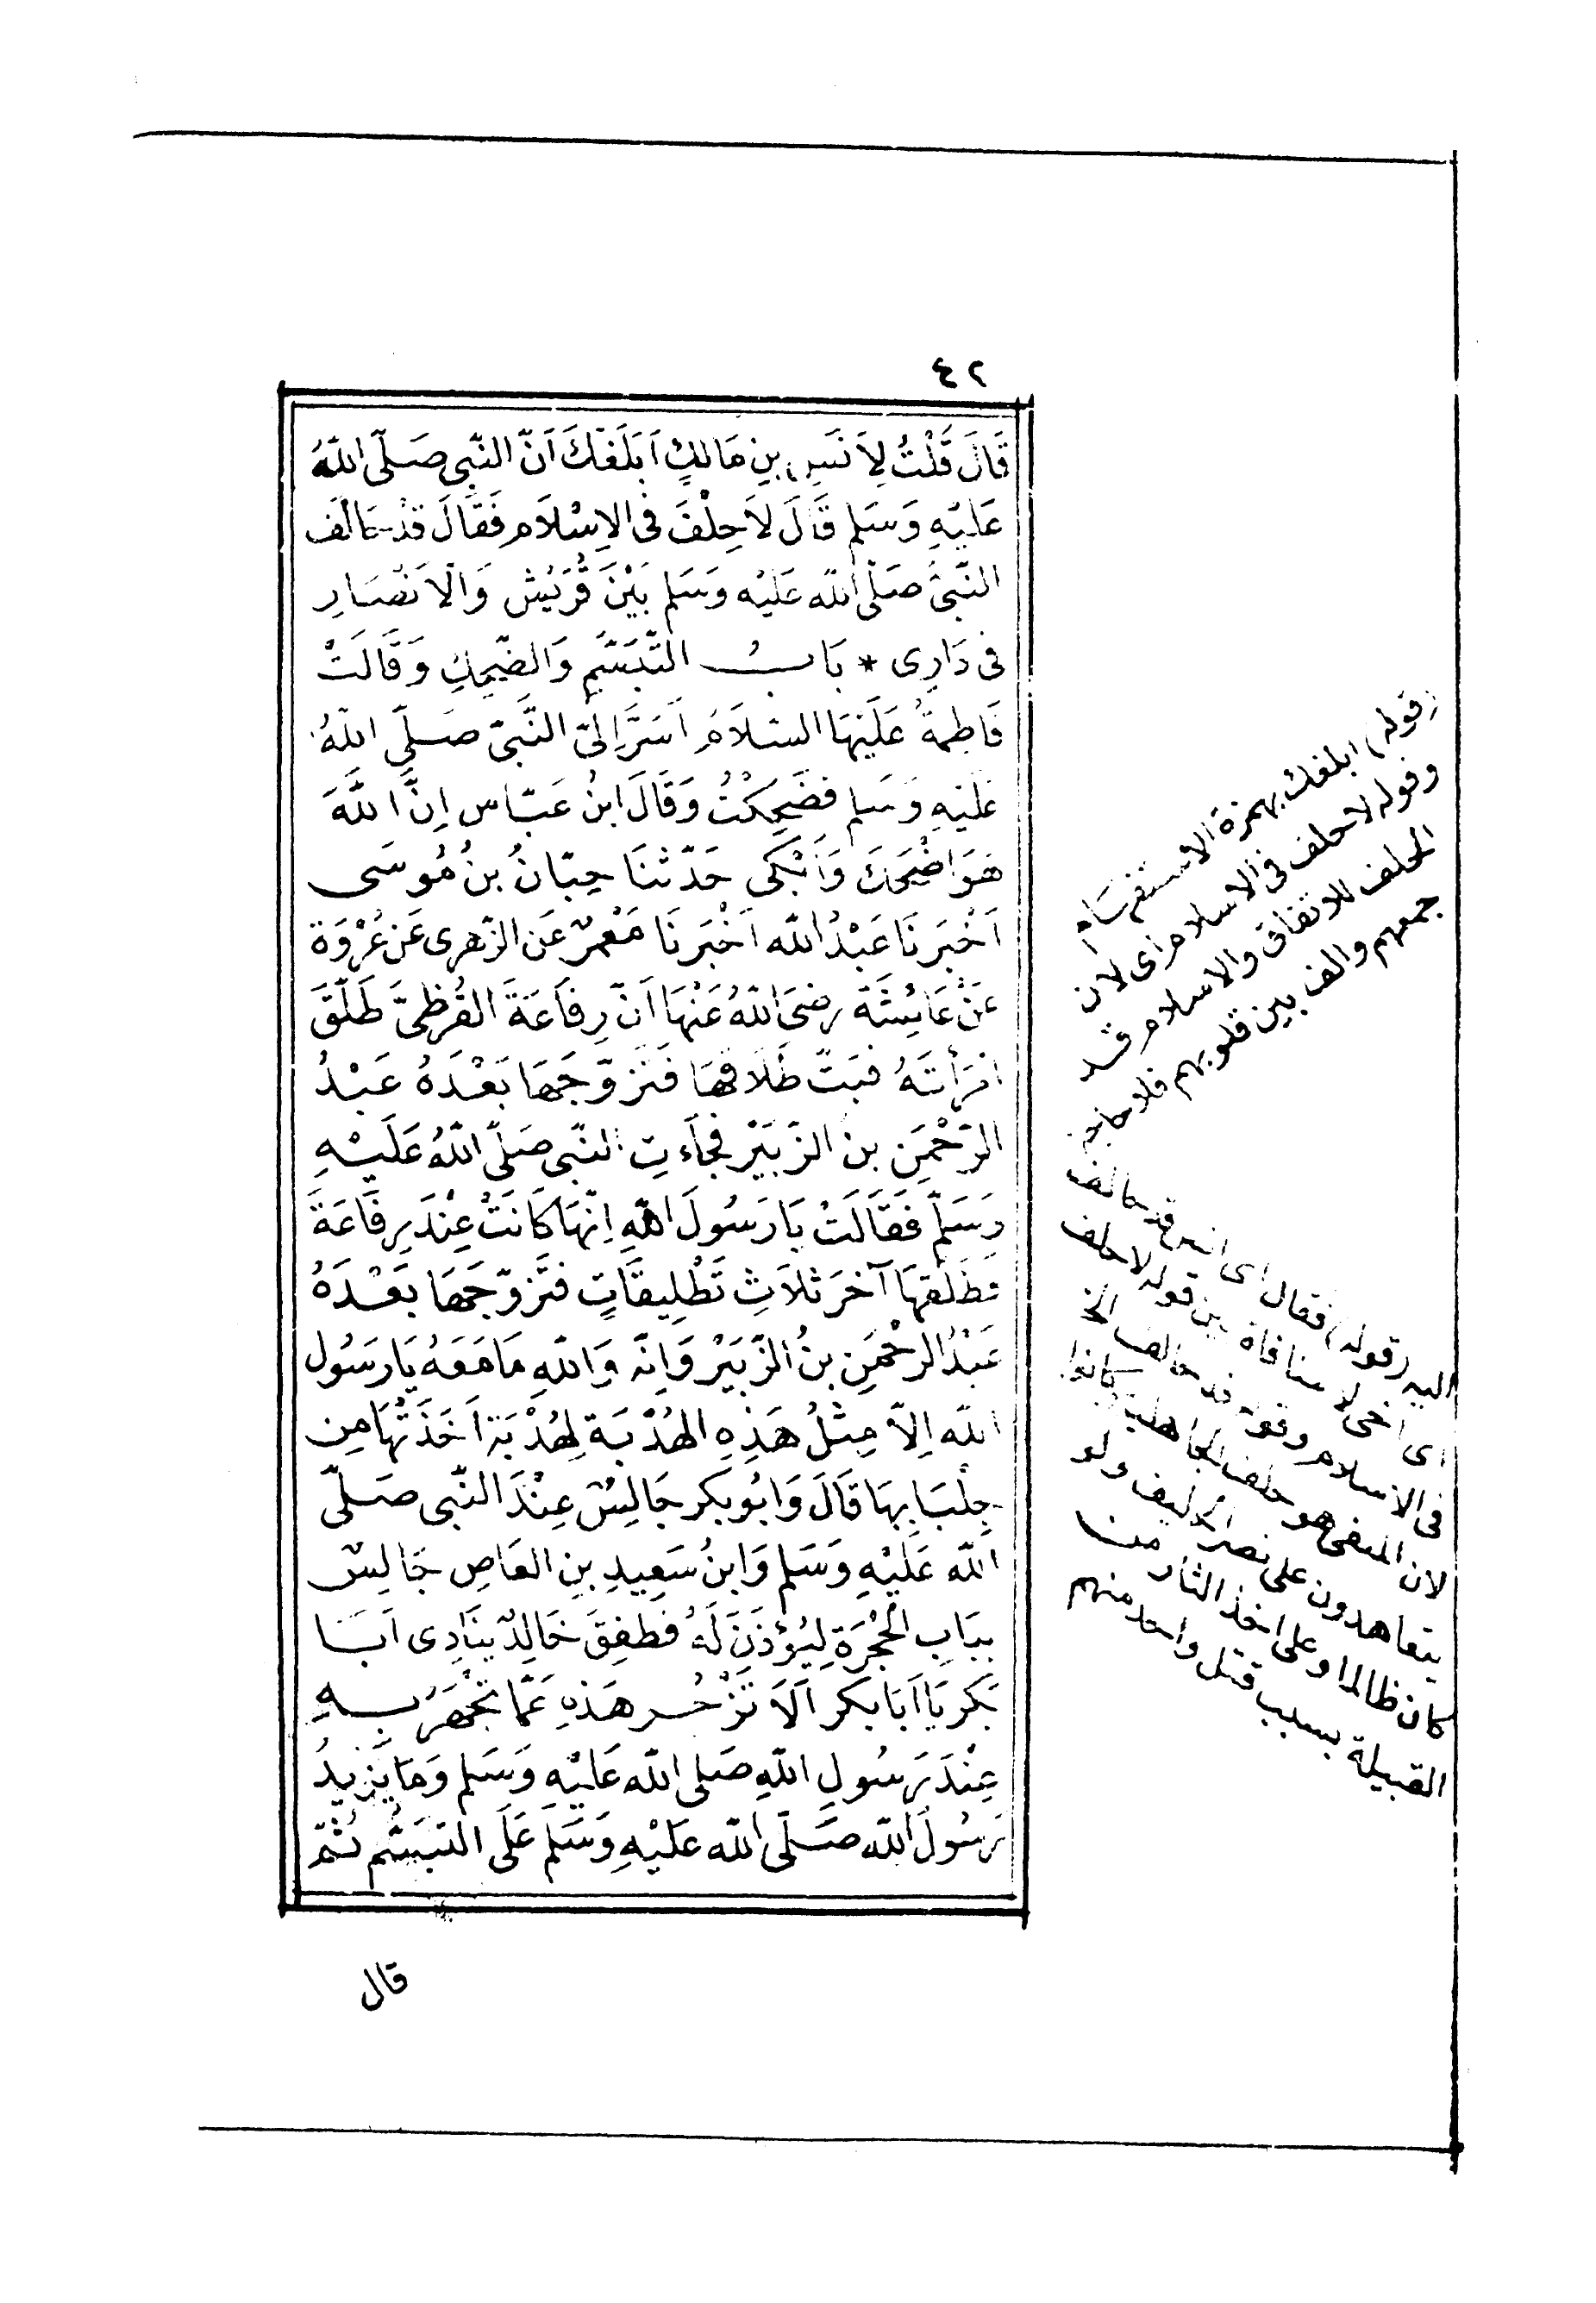 ٤٢
قَالَ قُلْتُ لِأَنَسِ بنِ مَالِكٍ اَبَلَغَكَ اَنّ النّبِى صَلّى اللّٰهُ
عَلَيْهِ وَسَلم قَالَ لاَ حِلْفَ فى الإِسْلَامِ فَقَالَ قَدْ حَالَف
النّبىُّ صَلّى اللّٰه عَلَيْه وَسَلم بَيْنَ قُرَيْش وَالْاَنْصَارِ
فى دَارِى * بَابُ التّبَسّمِ وَالضّحِكِ وَقَالَتْ
فَاطِمَةُ عَلَيْهَا السّلاَمُ اَسَرَّ اِلىّ النَّبىّ صَلّى اللّٰهُ
عَلَيْهِ وَسَلم فضَحِكْتُ وَقَالَ ابنُ عَبّاس اِنَّ اللّٰهَ
هَوَ اضْحَكَ وَاَبْكَى حَدّثنَا حِبّانُ بنُ مُوسَى
اَخْبَرَنَا عَبْدُ اللّٰه اَخْبَرنَا مَعْمَرٌ عَن الزّهرى عَن عُرْوَة
عَنْ عَائِشَةَ رضىَ اللّٰهُ عَنْهَا اَنّ رِفَاعَةَ القُرَظِىَّ طَلّقَ
امْرَأتَهُ فبَتّ طَلَاقهَا فَتَزوّجَهَا بَعْدَهُ عَبْدُ
الرّحْمَنِ بن الزّبَيْر فجَاَءتِ النّبى صَلّى اللّٰهُ عَلَيْهِ
وسَلّم فَقَالَتْ يَا رَسُولَ اللّٰهِ اِنّهَا كَانَتْ عِنْدَ رِفَاعَةَ
فطَلّقهَا آخرَ ثلاَثِ تَطْلِيقَاتٍ فتَزوّجَهَا بَعْدَهُ
عَبْدُ الرحْمَنِ بنُ الزّبَيْر وَاِنّه وَاللّٰهِ مَا مَعَهُ يَا رَسُول
اللّٰه اِلاّ مِثلُ هَذِهِ الهُدْبَة لِهُدْبَة اَخَذَتْهَا مِن
جِلْبَابِهَا قَالَ وَابُو بَكر جَالِسٌ عِنْدَ النّبى صَلّى
اللّٰه عَلَيْهِ وَسَلم وَابنُ سَعِيدِ بنِ العَاصِ جَالِسٌ
ببَابِ الحُجْرَةِ لِيُؤذَنَ لَهُ فطفِقَ خَالِدٌ يُنَادِى اَبَا
بَكر يَا اَبَا بَكر اَلاَ تَزْجُر هَذِهِ عَمّا تَجْهَرُ بِهِ
عِنْدَ رَسُولِ اللّٰهِ صَلى اللّٰه عَلَيْهِ وَسَلم وَمَا يَزِيدُ
رَسُولُ اللّٰه صَلّى اللّٰه عَلَيْهِ وَسَلم عَلَى التّبَسّم ثُمّ
قال
(قوله) ابلغك بهمزة الاستفهام
وقوله لا حلف فى الاسلام اى لان
الحلف للاتفاق والاسلام قد
جمعهم والف بين قلوبهم فلا حاجة
اليه (قوله) فقال اى انس قد حالف
اى آخى لا منافاة بين قوله لا حلف
فى الاسلام وقوله قد حالف الخ
لان المنفى هو حلف الجاهلية كانوا
يتعاهدون على نصر الحليف ولو
كان ظالما وعلى اخذ الثار من
القبيلة بسبب قتل واحد منهم